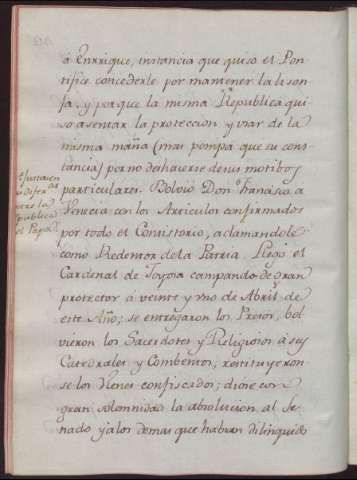 à Enrrique, instancia que quiso el Pon-
tifice concederle por mantener la lison-
ja, y porque la misma Republica qui-
so asentar la proteccion y usar de la
misma maña (mas pompa que su cons-
tancia) por no deshaverse de sus motibos
particulares. Bolvio Don Francisco a
Venecia con los Articulos confirmados
por todo el Consistorio, aclamandole
como Redentor de la Patria. Llegó el
Cardenal de Joyosa campando de gran
protector à veinte y uno de Abril de
este Año; se entregaron los Presos, bol-
vieron los Sacerdotes y Religiosos à sus
Catedrales y Combentos; restituyeron-
se los vienes confiscados; diose con
gran solemnidad la absolucion al Se-
nado y a los demas que habian dilinquido
Ajustansen
y diferas
entre la
Republica
el Papa